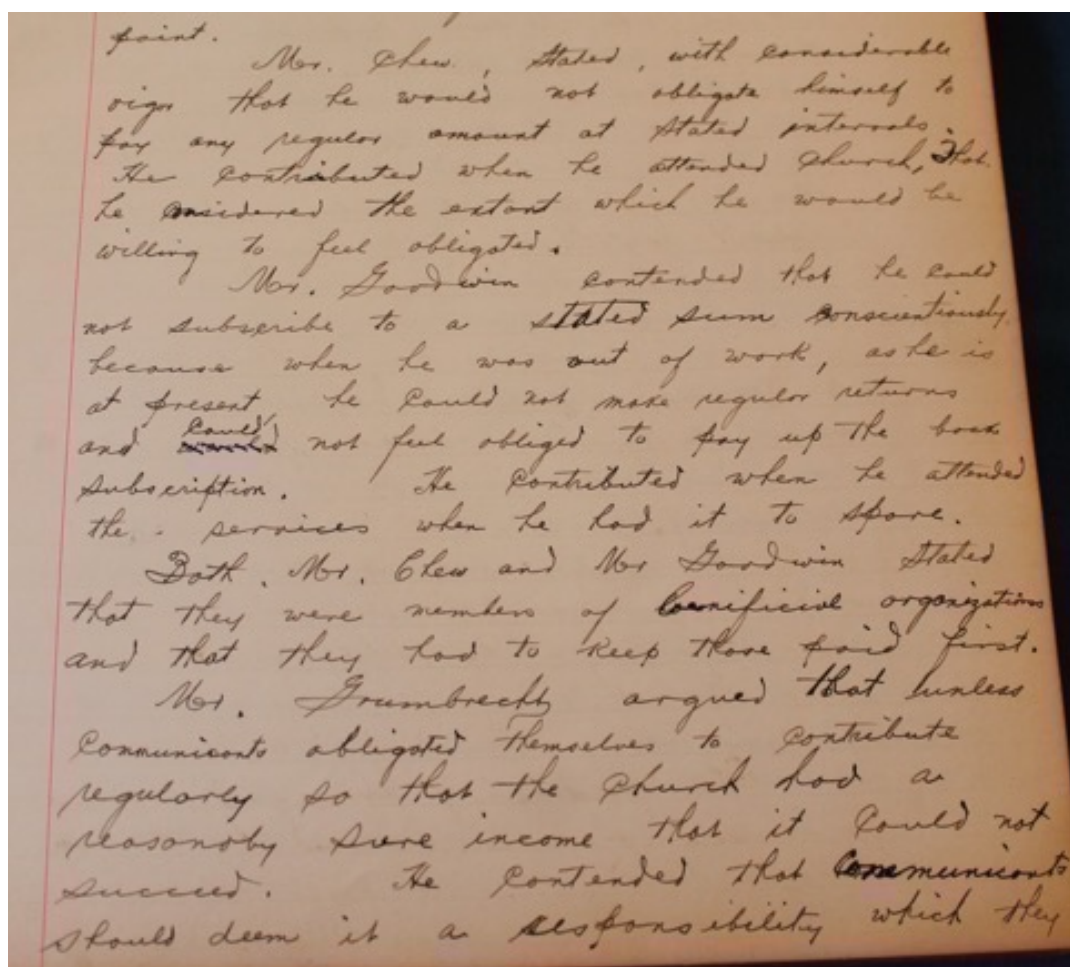 point.
Mr. Chew, stated, with considerable
vigor that he would not obligate himself to
pay any regular amount at stated intervals.
He contributed when he attended church, that
he considered the extant which he would be
willing to feel obligated.
Mr. Goodwin contended that he could
not subscribe to a stated sum conscientiously
because when he was out of work, as he is
at present, he could not make regular returns
and could not feel obliged to pay up the back
subscription. He contributed when he attended
the services when he had it to spare.
Both, Mr. Chew and Mr Goodwin stated
that they were members of benificial organizations
and that they had to keep those paid first.
Mr. Grumbrecht argued that unless
communicants obligated themselves to contribute
regularly so that the church had a
reasonaby sure income that it could not
succeed. He contended that communicants
should deem it a responsibility which they